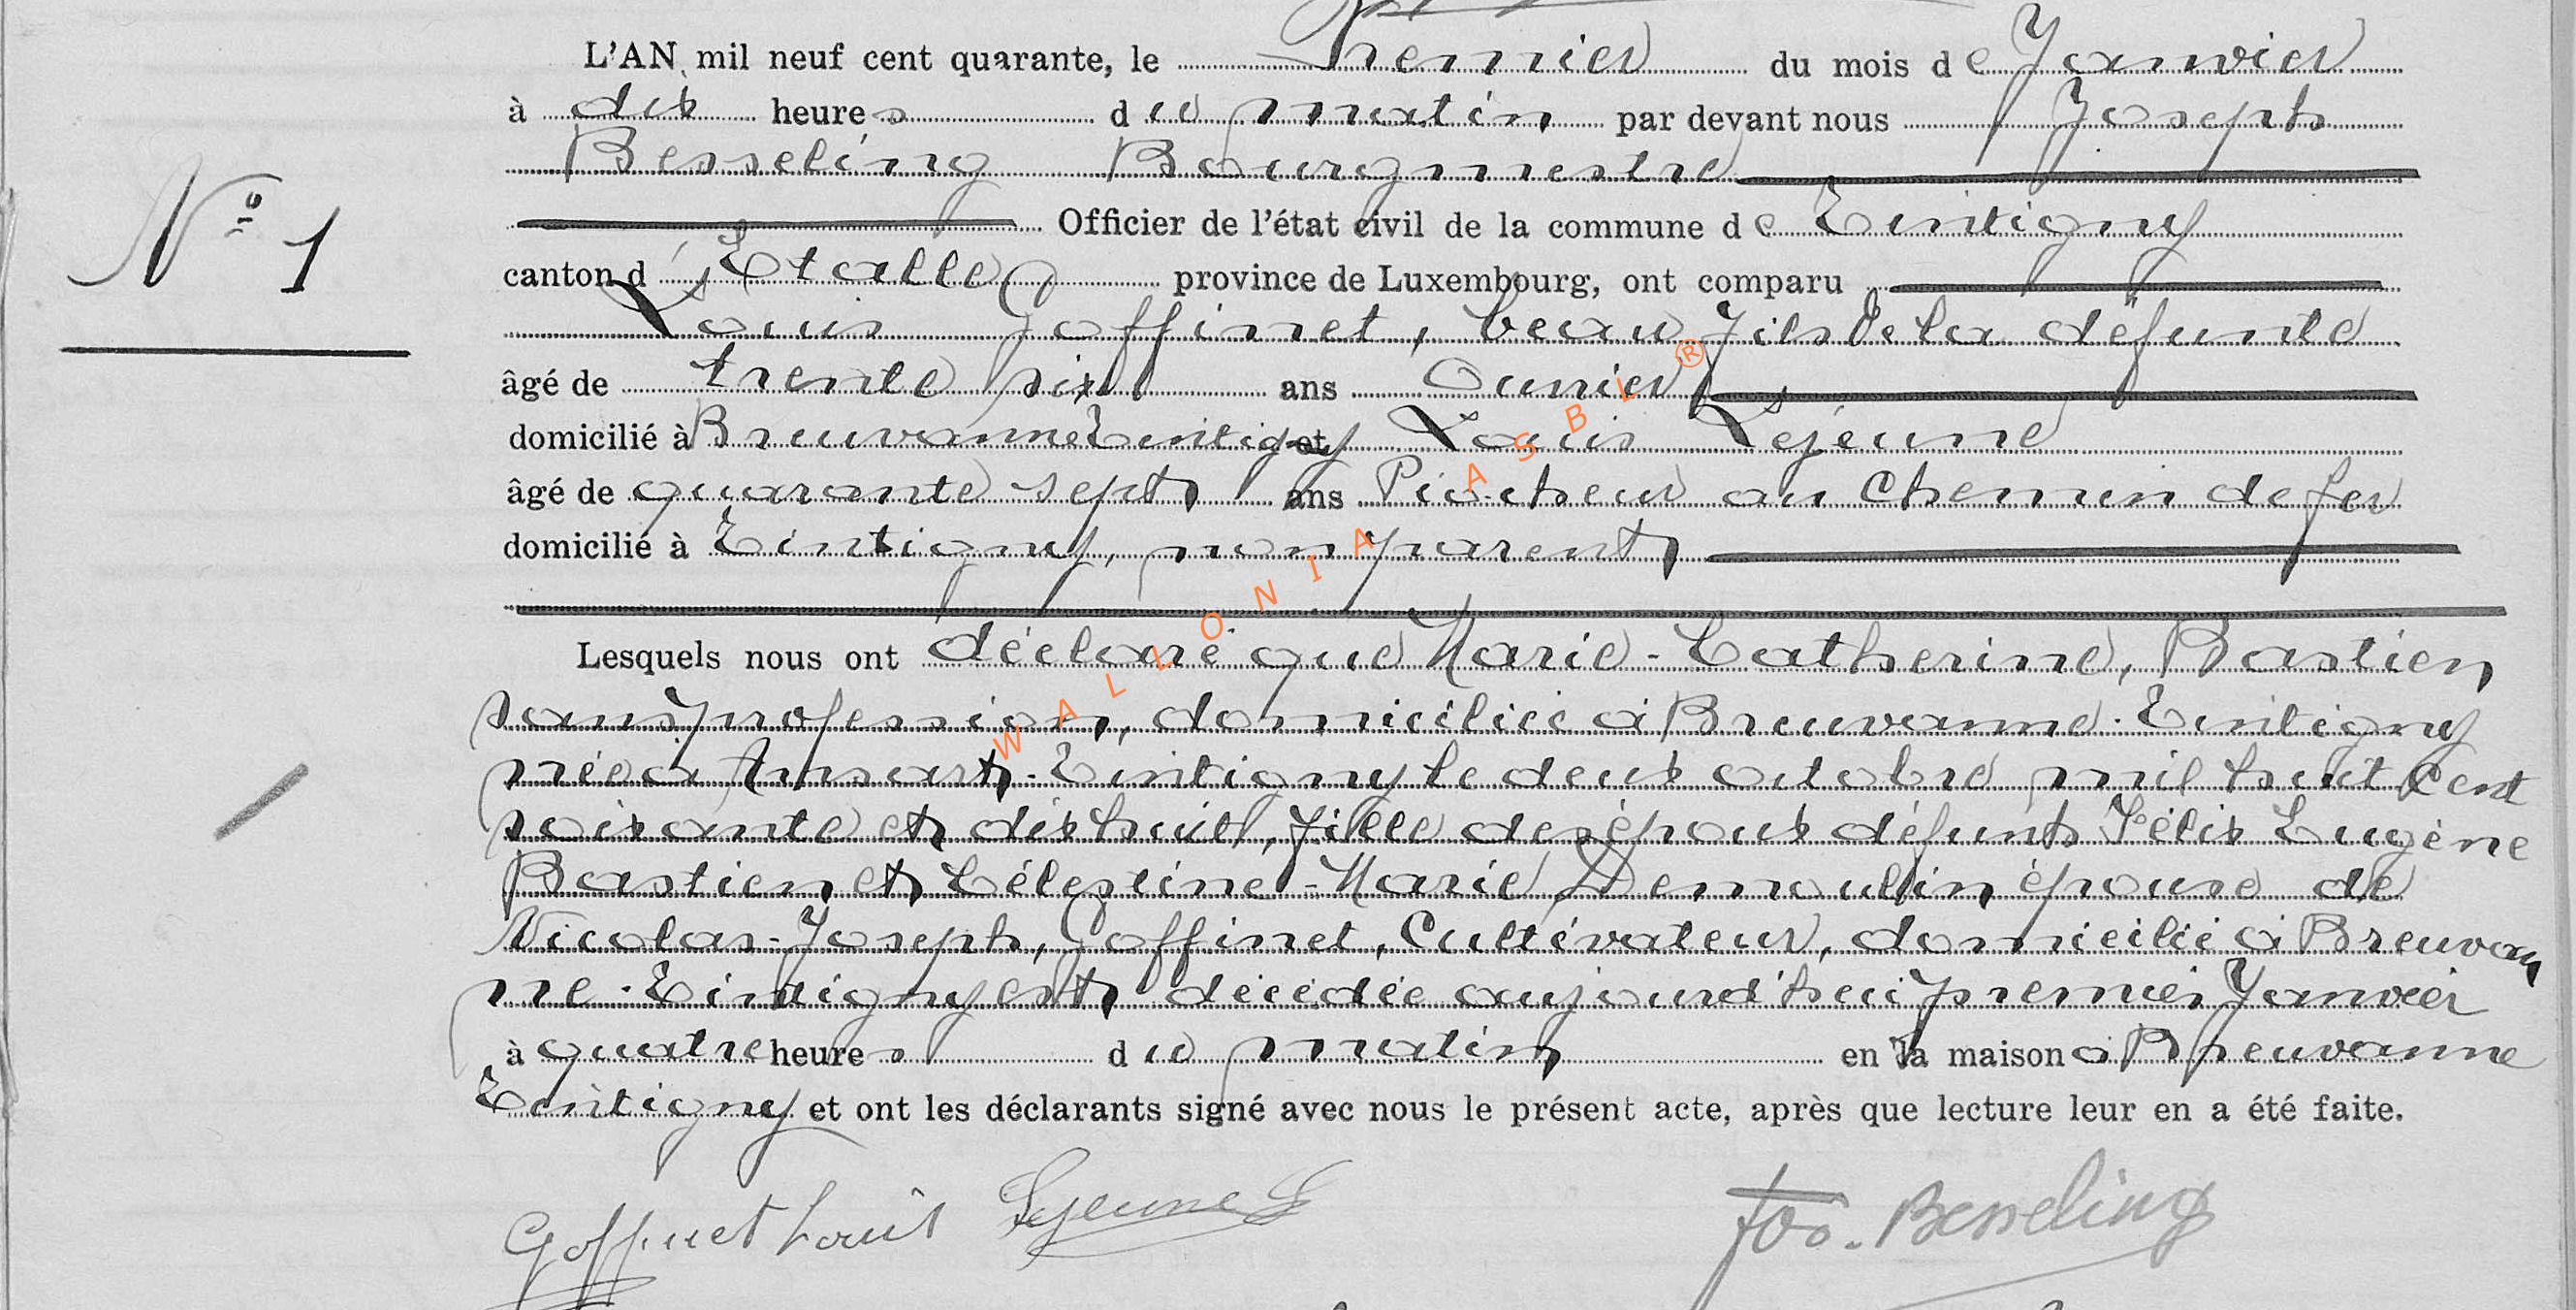 L'AN mil neuf cent quarante, le Premier du mois de Janvier
à dix heures du matin par devant nous Joseph
Besseling Bourgmestre
N° 1
Officier de l'état civil de la commune de Tintigny
canton d'Etalle province de Luxembourg, ont comparu
Louis Goffinet, beau fils de la défunte
âgé de trente six ans Ouvrier
domicilié à Breuvanne Tintigny et Louis Lejeune
âgé de quarante sept ans Piocheur au Chemin de fer
domicilié à Tintigny, non parent
Lesquels nous ont déclaré que Marie-Catherine, Bastien
sans profession, domiciliée à Breuvanne-Tintigny
née à Ansart-Tintigny le deux octobre mil huit cent
soixante et dix huit, fille des époux défunts Félix Eugène
Bastien et Célestine-Marie Demoulin épouse de
Nicolas-Joseph, Goffinet, Cultivateur, domicilié à Breuvan
ne-Tintigny est décédée aujourd'hui premier Janvier
à quatre heures du matin en la maison à Breuvanne
Tintigny et ont les déclarants signé avec nous le présent acte, après que lecture leur en a été faite.
Goffinet Louis Lejeune L Jos. Besseling
WALLONIA ASBL ®